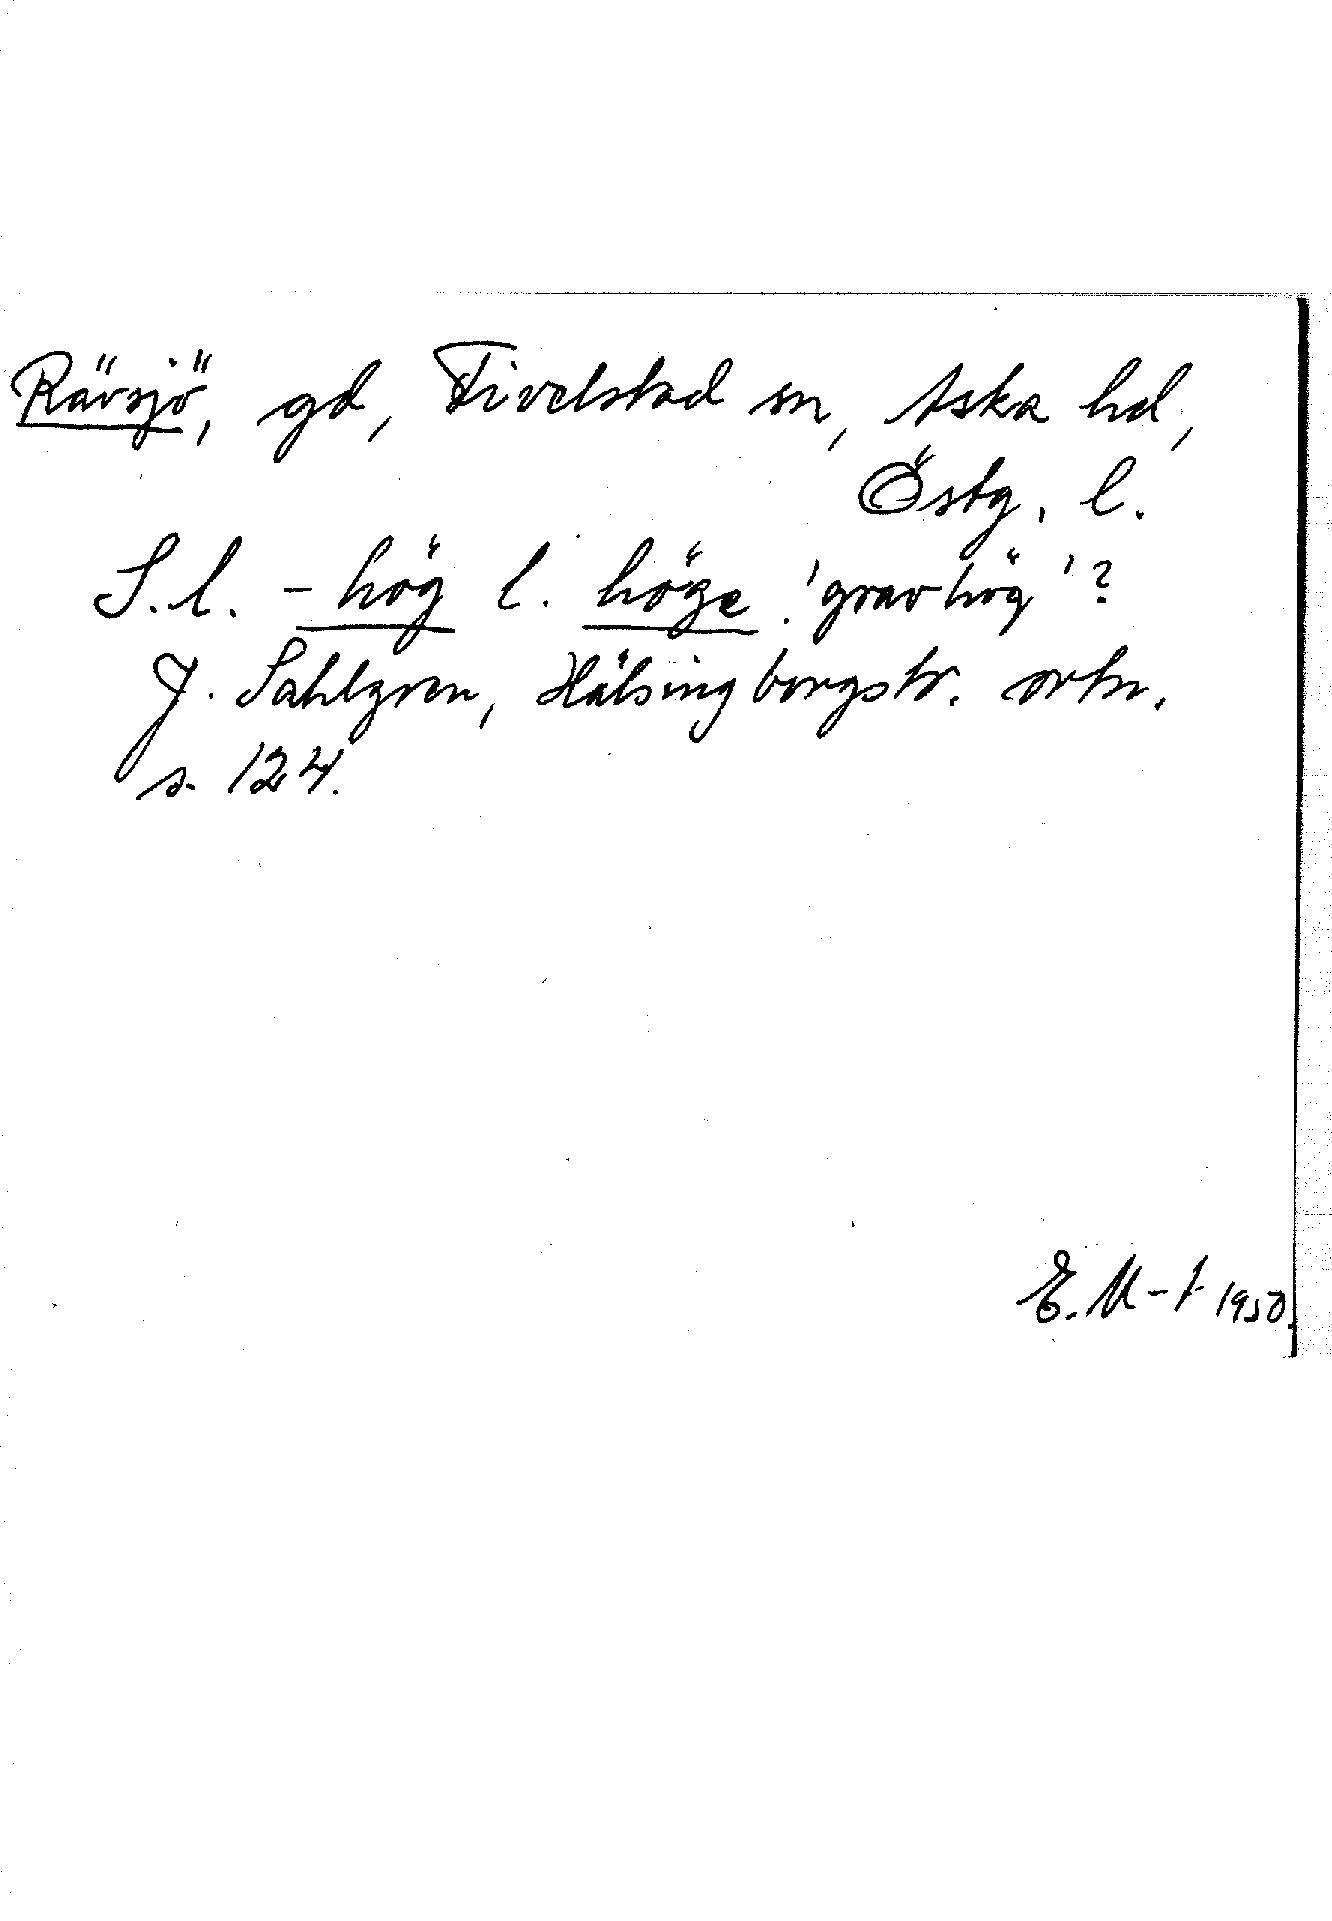 Rävsjö, gd, Fivelstad sn, Aska hd,
Östg. l.
S.l. -hög l. höge. 'gravhög'?
J. Sahlgren, Hälsingborgstr. ortn.
s. 124.
E. M-t 1950.